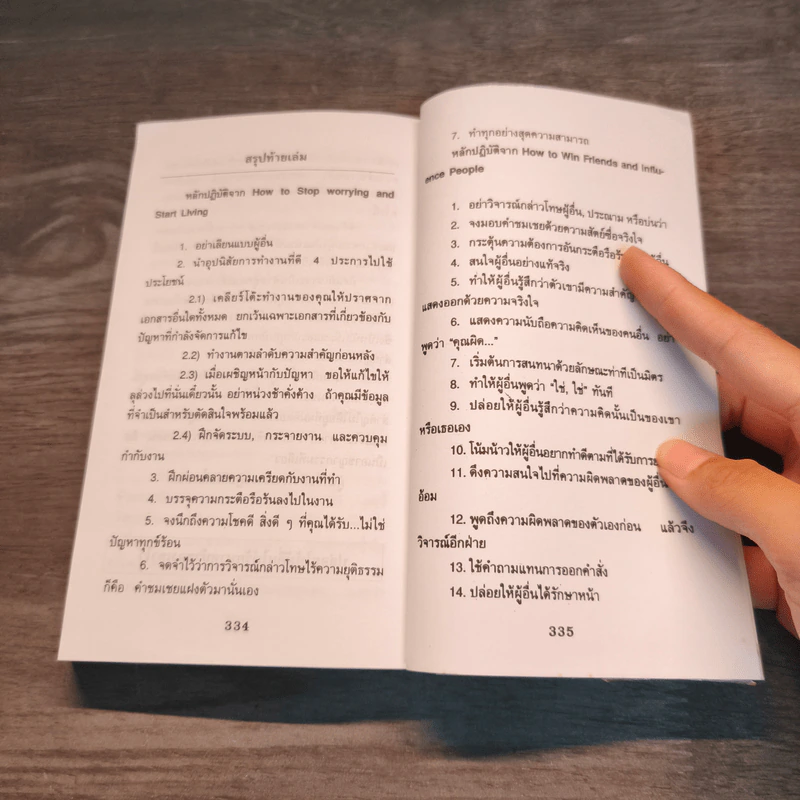 สรุปท้ายเล่ม
หลักปฏิบัติจาก How to Stop worrying and
Start Living
1. อย่าเลียนแบบผู้อื่น
2. นำอุปนิสัยการทำงานที่ดี 4 ประการไปใช้
ประโยชน์
2.1) เคลียร์โต๊ะทำงานของคุณให้ปราศจาก
เอกสารอื่นใดทั้งหมด ยกเว้นเฉพาะเอกสารที่เกี่ยวข้องกับ
ปัญหาที่กำลังจัดการแก้ไข
2.2) ทำงานตามลำดับความสำคัญก่อนหลัง
2.3) เมื่อเผชิญหน้ากับปัญหา ขอให้แก้ไขให้
ลุล่วงไปที่นั่นเดี๋ยวนั้น อย่าหน่วงช้าคั่งค้าง ถ้าคุณมีข้อมูล
ที่จำเป็นสำหรับตัดสินใจพร้อมแล้ว
2.4) ฝึกจัดระบบ, กระจายงาน และควบคุม
กำกับงาน
3. ฝึกผ่อนคลายความเครียดกับงานที่ทำ
4. บรรจุความกระตือรือร้นลงไปในงาน
5. จงนึกถึงความโชคดี สิ่งดี ๆ ที่คุณได้รับ...ไม่ใช่
ปัญหาทุกข์ร้อน
6. จดจำไว้ว่าการวิจารณ์กล่าวโทษไร้ความยุติธรรม
ก็คือ คำชมเชยแฝงตัวมานั่นเอง
334
7. ทำทุกอย่างสุดความสามารถ
หลักปฏิบัติจาก How to Win Friends and Influ-
ence People
1. อย่าวิจารณ์กล่าวโทษผู้อื่น, ประณาม หรือบ่นว่า
2. จงมอบคำชมเชยด้วยความสัตย์ซื่อจริงใจ
3. กระตุ้นความต้องการอันกระตือรือร้
4. สนใจผู้อื่นอย่างแท้จริง
5. ทำให้ผู้อื่นรู้สึกว่าตัวเขามีความสำคัญ
แสดงออกด้วยความจริงใจ
6. แสดงความนับถือความคิดเห็นของคนอื่น อย่า
พูดว่า "คุณผิด..."
7. เริ่มต้นการสนทนาด้วยลักษณะท่าทีเป็นมิตร
8. ทำให้ผู้อื่นพูดว่า "ใช่, ใช่" ทันที
9. ปล่อยให้ผู้อื่นรู้สึกว่าความคิดนั้นเป็นของเขา
หรือเธอเอง
10. โน้มน้าวให้ผู้อื่นอยากทำดีตามที่ได้รับการ
11. ดึงความสนใจไปที่ความผิดพลาดของผู้อื่น
อ้อม
12. พูดถึงความผิดพลาดของตัวเองก่อน แล้วจึง
วิจารณ์อีกฝ่าย
13. ใช้คำถามแทนการออกคำสั่ง
14. ปล่อยให้ผู้อื่นได้รักษาหน้า
335